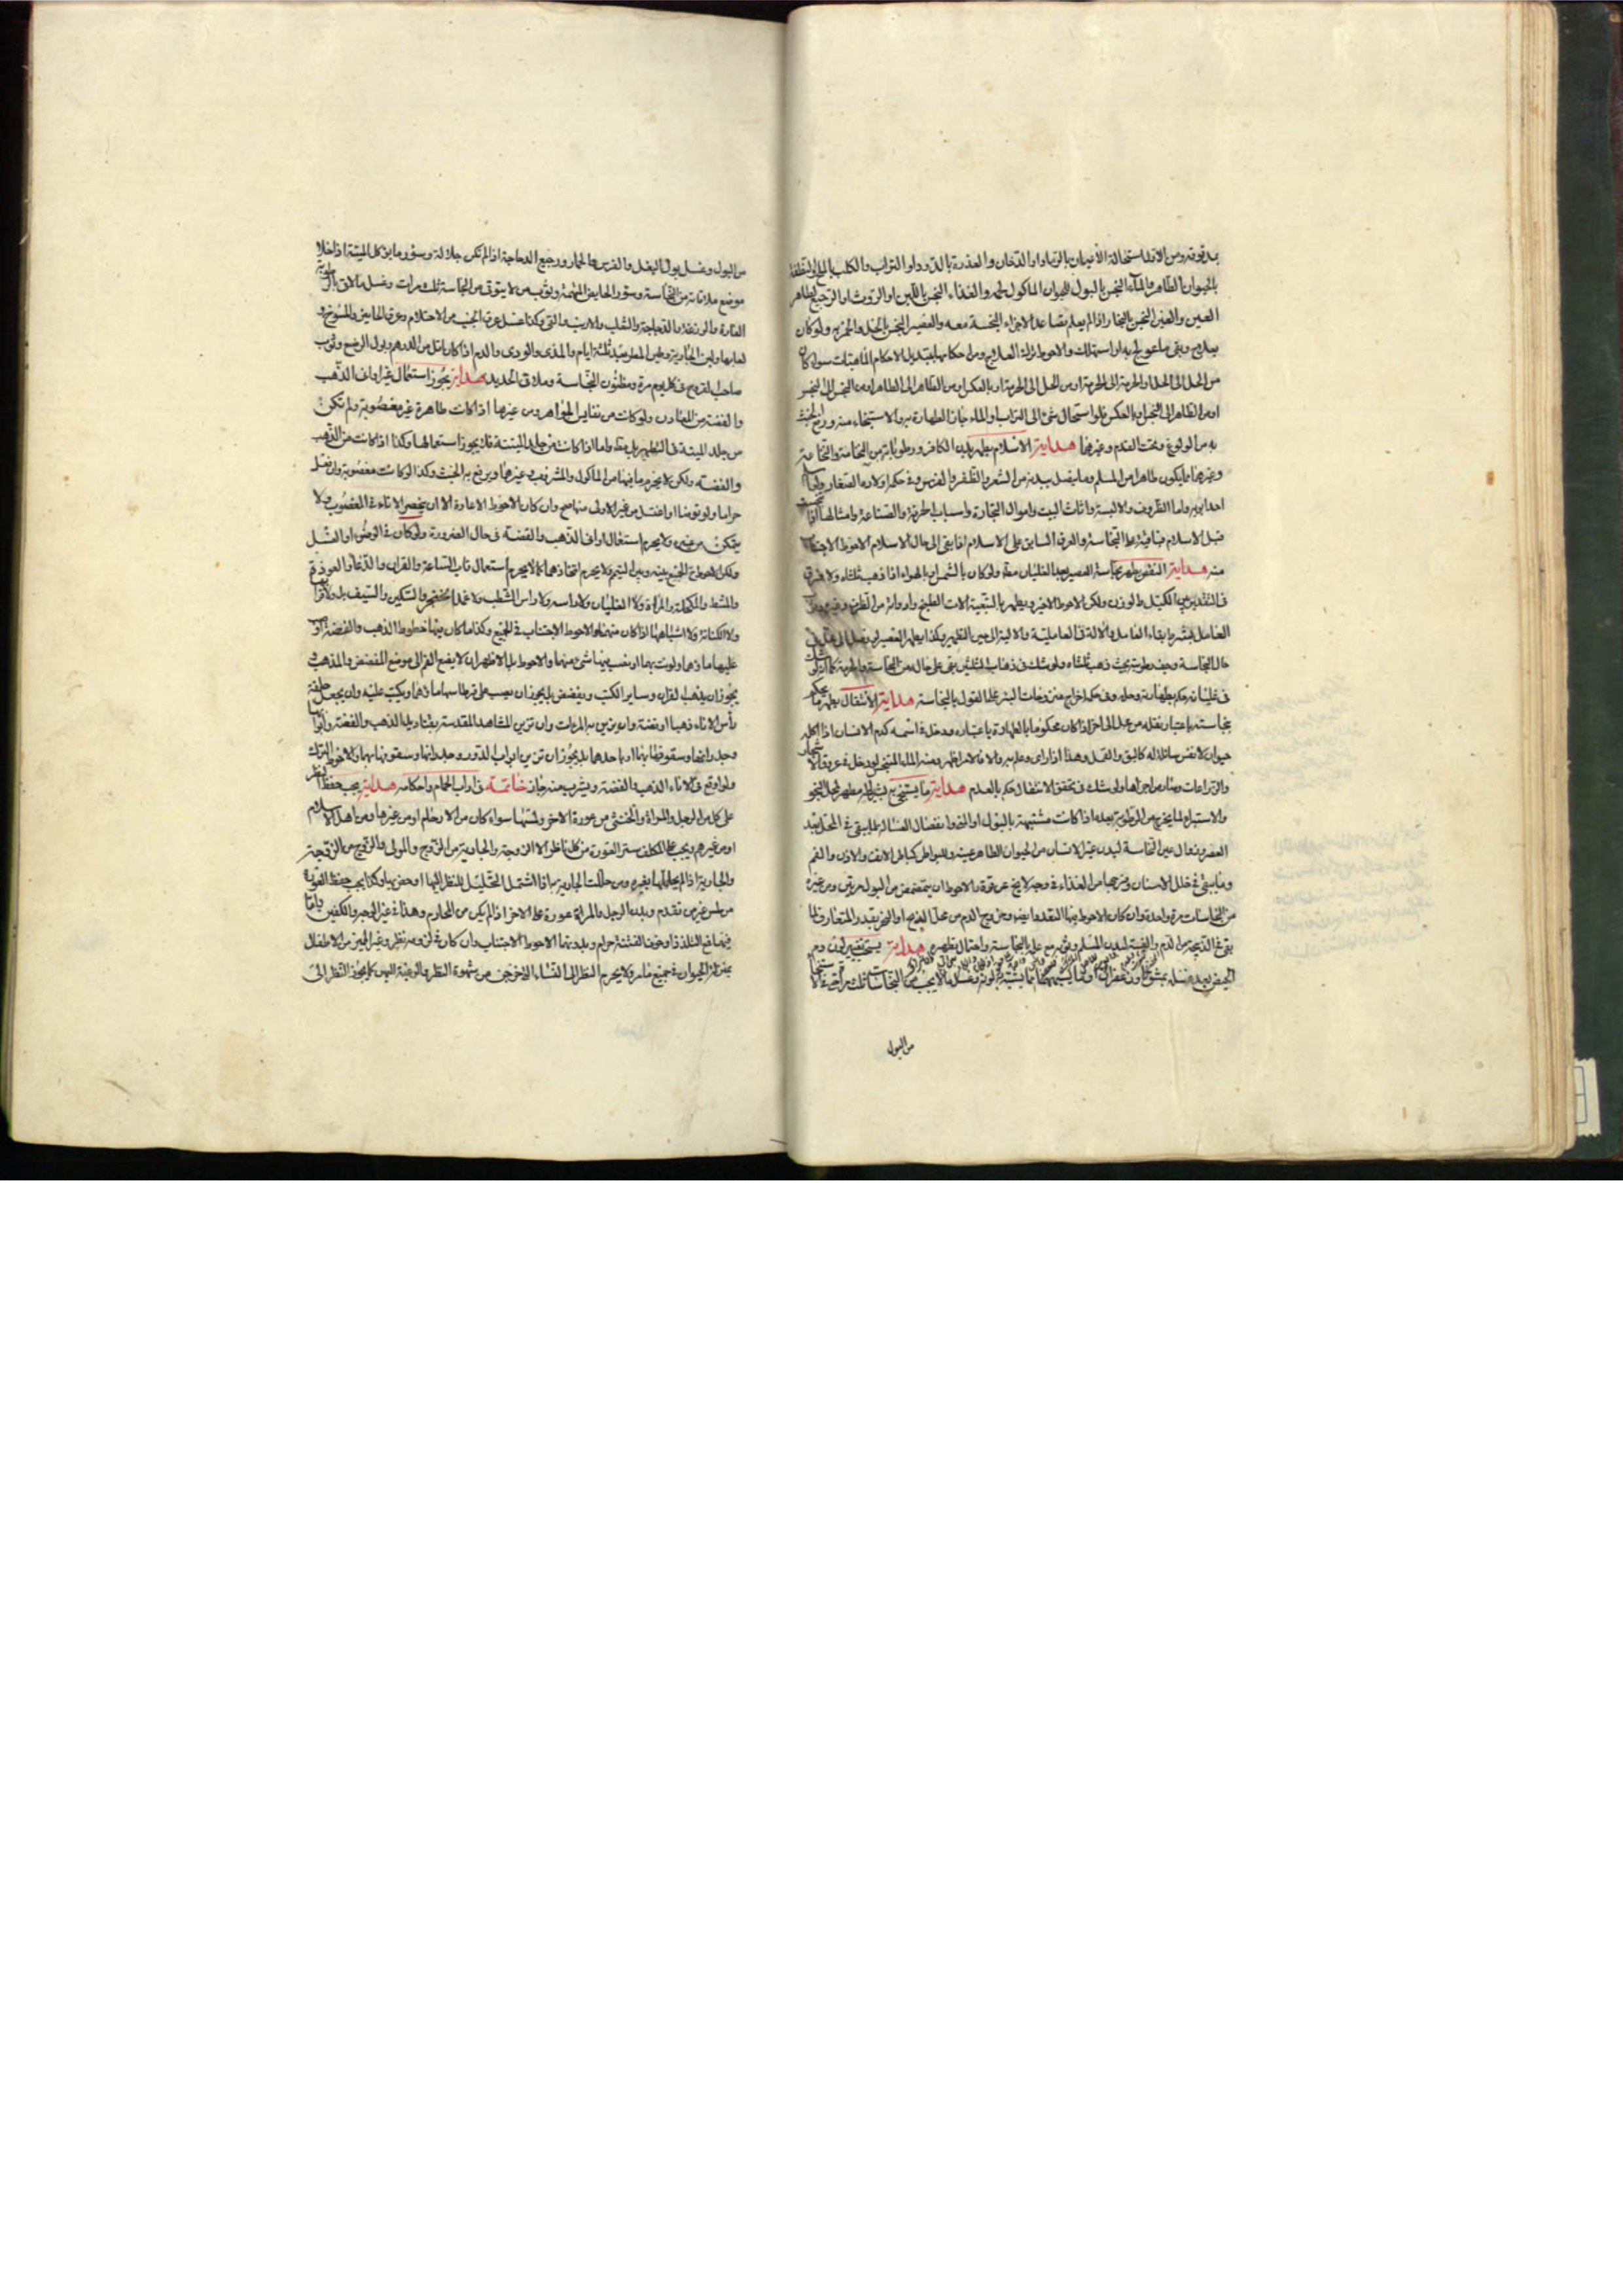 بدقوقه ومن الاقل استحالة الاعيان بالرماد او الدخان والعذرة بالدود او التراب والكلب بالملح او النطفة
بالحيوان الطاهر والماء النجس بالبول للحيوان الماكول لحمه والغذاء النجس باللبن او الروث او الرجيع لطاهر
العين والعين النجس بالبخار اذا لم يعلم تصاعد الاجزاء النجسة معه والعصير النجس بالخل والخمر به ولو كان
بعلاج وبقي ما عولج به او استهلك والاحوط ترك العلاج ومن احكامها تبديل الاحكام الماهيات سواء كان
من الحل الى الحل او الحرمة الى الحرمة او من الحل الى الحرمة او بالعكس او من الطاهر الى الطاهر او من النجس الى النجس
او من الطاهر الى النجس او بالعكس فلو استحال شئ الى التراب او الماء جاز الطهارة به والاستنجاء منه ورفع الخبث
به من الولوغ وتحت القدم وغيرهما هداية الاسلام يطهر بدن الكافر ورطوباته من النخامة والنخاعة
وغيرهما مما يكون طاهرا من المسلم وما يتصل ببدنه من الشعر والظفر والضرس وفي حكمه اولاده الصغار
احد ابويه واما الظروف والالبسة واثاث البيت واموال التجارة واسباب الحرفة والصناعة وامثالها
قبل الاسلام فباقية على النجاسة والعرق السابق على الاسلام اذا بقي الى حال الاسلام الاحوط الاجتناب
منه هداية النقص يطهر نجاسة العصير بعد الغليان مطلقا ولو كان بالشمس او بالهواء اذا ذهب ثلثاه ولا فرق
في التقدير بين الكيل والوزن ولكن الاحوط الاخير ويطهر بالتبعية الات الطبخ وادواته من الظرف وغيره
العامل بشرط بقاء العامل والالة في العاملية والالية الى حين التطهير وكذا يطهر العصير
حال النجاسة وجف رطوبته بحيث ذهب ثلثاه ولو شك في ذهاب الثلثين بقي على حاله من النجاسة والحرمة كما
في غليانه حكم بطهارته وحله وفي حكمه اخراج منزوحات البئر على القول بالنجاسة هداية الانتقال يطهر ما يحكم
بنجاسته باعتبار نقله من محل الى اخر اذا كان محكوما بالطهارة باعتباره ودخل في اسمه كدم الانسان اذا
حيوان لا نفس سائلة له كالبق والقمل وهذا اذا راى وعلم به والا فالاظهر ومنه الماء المتنجس لو دخل في عروق الاشجار
والزراعات وصار من اجزائها ولو شك في تحقق الانتقال حكم بالعدم هداية ما يستنجى به مطهر لمحل النجو
والاستبراء لما يخرج من الرطوبة بعده اذا كانت مشتبهة بالبول او المني وانفصال الغسالة لما يبقى في المحل بعد
العصر وزوال عين النجاسة لبدن غير الانسان من الحيوان الطاهر عينه وللبواطن كباطن الانف والاذن والفم
وما يبقى في خلل الاسنان ونحوها من الغذاء في وجه لا يخ عن قوة والاحوط ان يتمضمض من البول مرتين ومن غيره
من النجاسات مرة واحدة وان كان الاحوط فيها التعدد ايضا وخروج الدم من محل الذبح او النحر بقدر المتعارف لما
بقي في الذبيحة من الدم والغيبة لبدن المسلم وثوبه مع علمه بالنجاسة واحتمال تطهيره هداية يستحب تغيير لون دم
الحيض بعد غسله بمشق او زعفران
من البول
من البول وغسل بول البغل والفرس والحمار ورجيع الدجاجة اذا لم تكن جلالة وسؤر ما ياكل الميتة اذا خلا
موضع ملاقاته من النجاسة وسؤر الحايض المتهمة وثوب من لا يتوقى من النجاسة ثلث مرات وغسل ملاقى
الفارة والوزغة والدجاجة والثعلب والارنب والقي وكذا غسل عرق الجنب من الاحتلام وعرق الحايض والمسوخ و
لعابها ولبن الجارية وطين المطر بعد ثلثة ايام والمذي والوذي والدم اذا كان اقل من الدرهم وبول الرضيع وثوب
صاحب القروح في كل يوم مرة ومظنون النجاسة وملاقى الحديد هداية يجوز استعمال غير اواني الذهب
والفضة من المعادن ولو كانت من نفايس الجواهر ومن غيرها اذا كانت طاهرة غير مغصوبة ولم تكن
من جلد الميتة واما اذا كانت من جلد الميتة فلا يجوز استعمالها وكذا اذا كانت من الذهب
والفضة ولكن لا يحرم ما فيها من الماكول والمشروب وغيرهما ويرفع به الخبث وكذا لو كانت مغصوبة وان فعل
حراما ولو توضا او اغتسل من غير الاولى منها صح وان كان الاحوط الاعادة الا ان ينحصر الاناء في المغصوب ولا
يتمكن من غيره ولا يحرم استعمال اواني الذهب والفضة في حال الضرورة ولو كان في الوضوء او الغسل
ولكن الاحوط الجمع بينه وبين التيمم ولا يحرم اتخاذهما كما لا يحرم استعمال قاب الساعة والقران والدعاء والعوذة
والمشط والمكحلة والمراة ولا الغليان ولا راسه ولا راس الشطب ولا غمد الخنجر والسكين والسيف بل ولا
ولا الكتابة ولا اشباهها اذا كان منهما والاحوط الاجتناب في الجميع وكذا ما كان فيها خطوط الذهب والفضة او
عليها ماؤهما ولونت بهما او نصب فيها شئ منهما والاحوط بل الاظهر ان لا يضع الفم الى موضع المفضض والمذهب و
يجوز ان يذهب القران وساير الكتب ويفضض بل يجوز ان يصب على قرطاسها ماؤهما ويكتب عليه وان يجعل حلقة
رأس الاناء ذهبا او فضة وان يزين به المرءات وان تزين المشاهد المقدسة بقناديل الذهب والفضة وابوابها
وجدرانها وسقوفها بهما او باحدهما بل يجوز ان تزين ابواب الدور وجدرانها وسقوفها بهما والاحوط الترك
ولو وقع في الاناء الذهب والفضة ويشرب منه جاز خاتمة في اداب الحمام واحكامه هداية يجب حفظ النظر
على كل من الرجل والمراة والخنثى من عورة الاخر ولمسها سواء كان من الارحام او من غيرها ومن اهل الاسلام
او من غيرهم ويجب على المكلف ستر العورة من كل ناظر الا الزوجة والجارية من الزوج والمولى والزوج من الزوجة
والجارية اذا لم يحللها لغيره ومن حللت الجارية به اذا اشتمل التحليل للنظر اليها او خص به وكذا يجب حفظ العورة
من لمس غير من تقدم وبدن الرجل والمراة عورة على الاخر اذا لم يكن من المحارم وهذا في غير الوجه والكفين واما
فيهما فمع التلذذ او خوف الفتنة حرام وبدونهما الاحوط الاجتناب وان كان في لزومه نظر وغير المميز من الاطفال
بمنزلة الحيوان في جميع ما مر ولا يحرم النظر الى النساء اللاتي خرجن من شهوة النظر والرغبة اليهن كما يجوز النظر الى